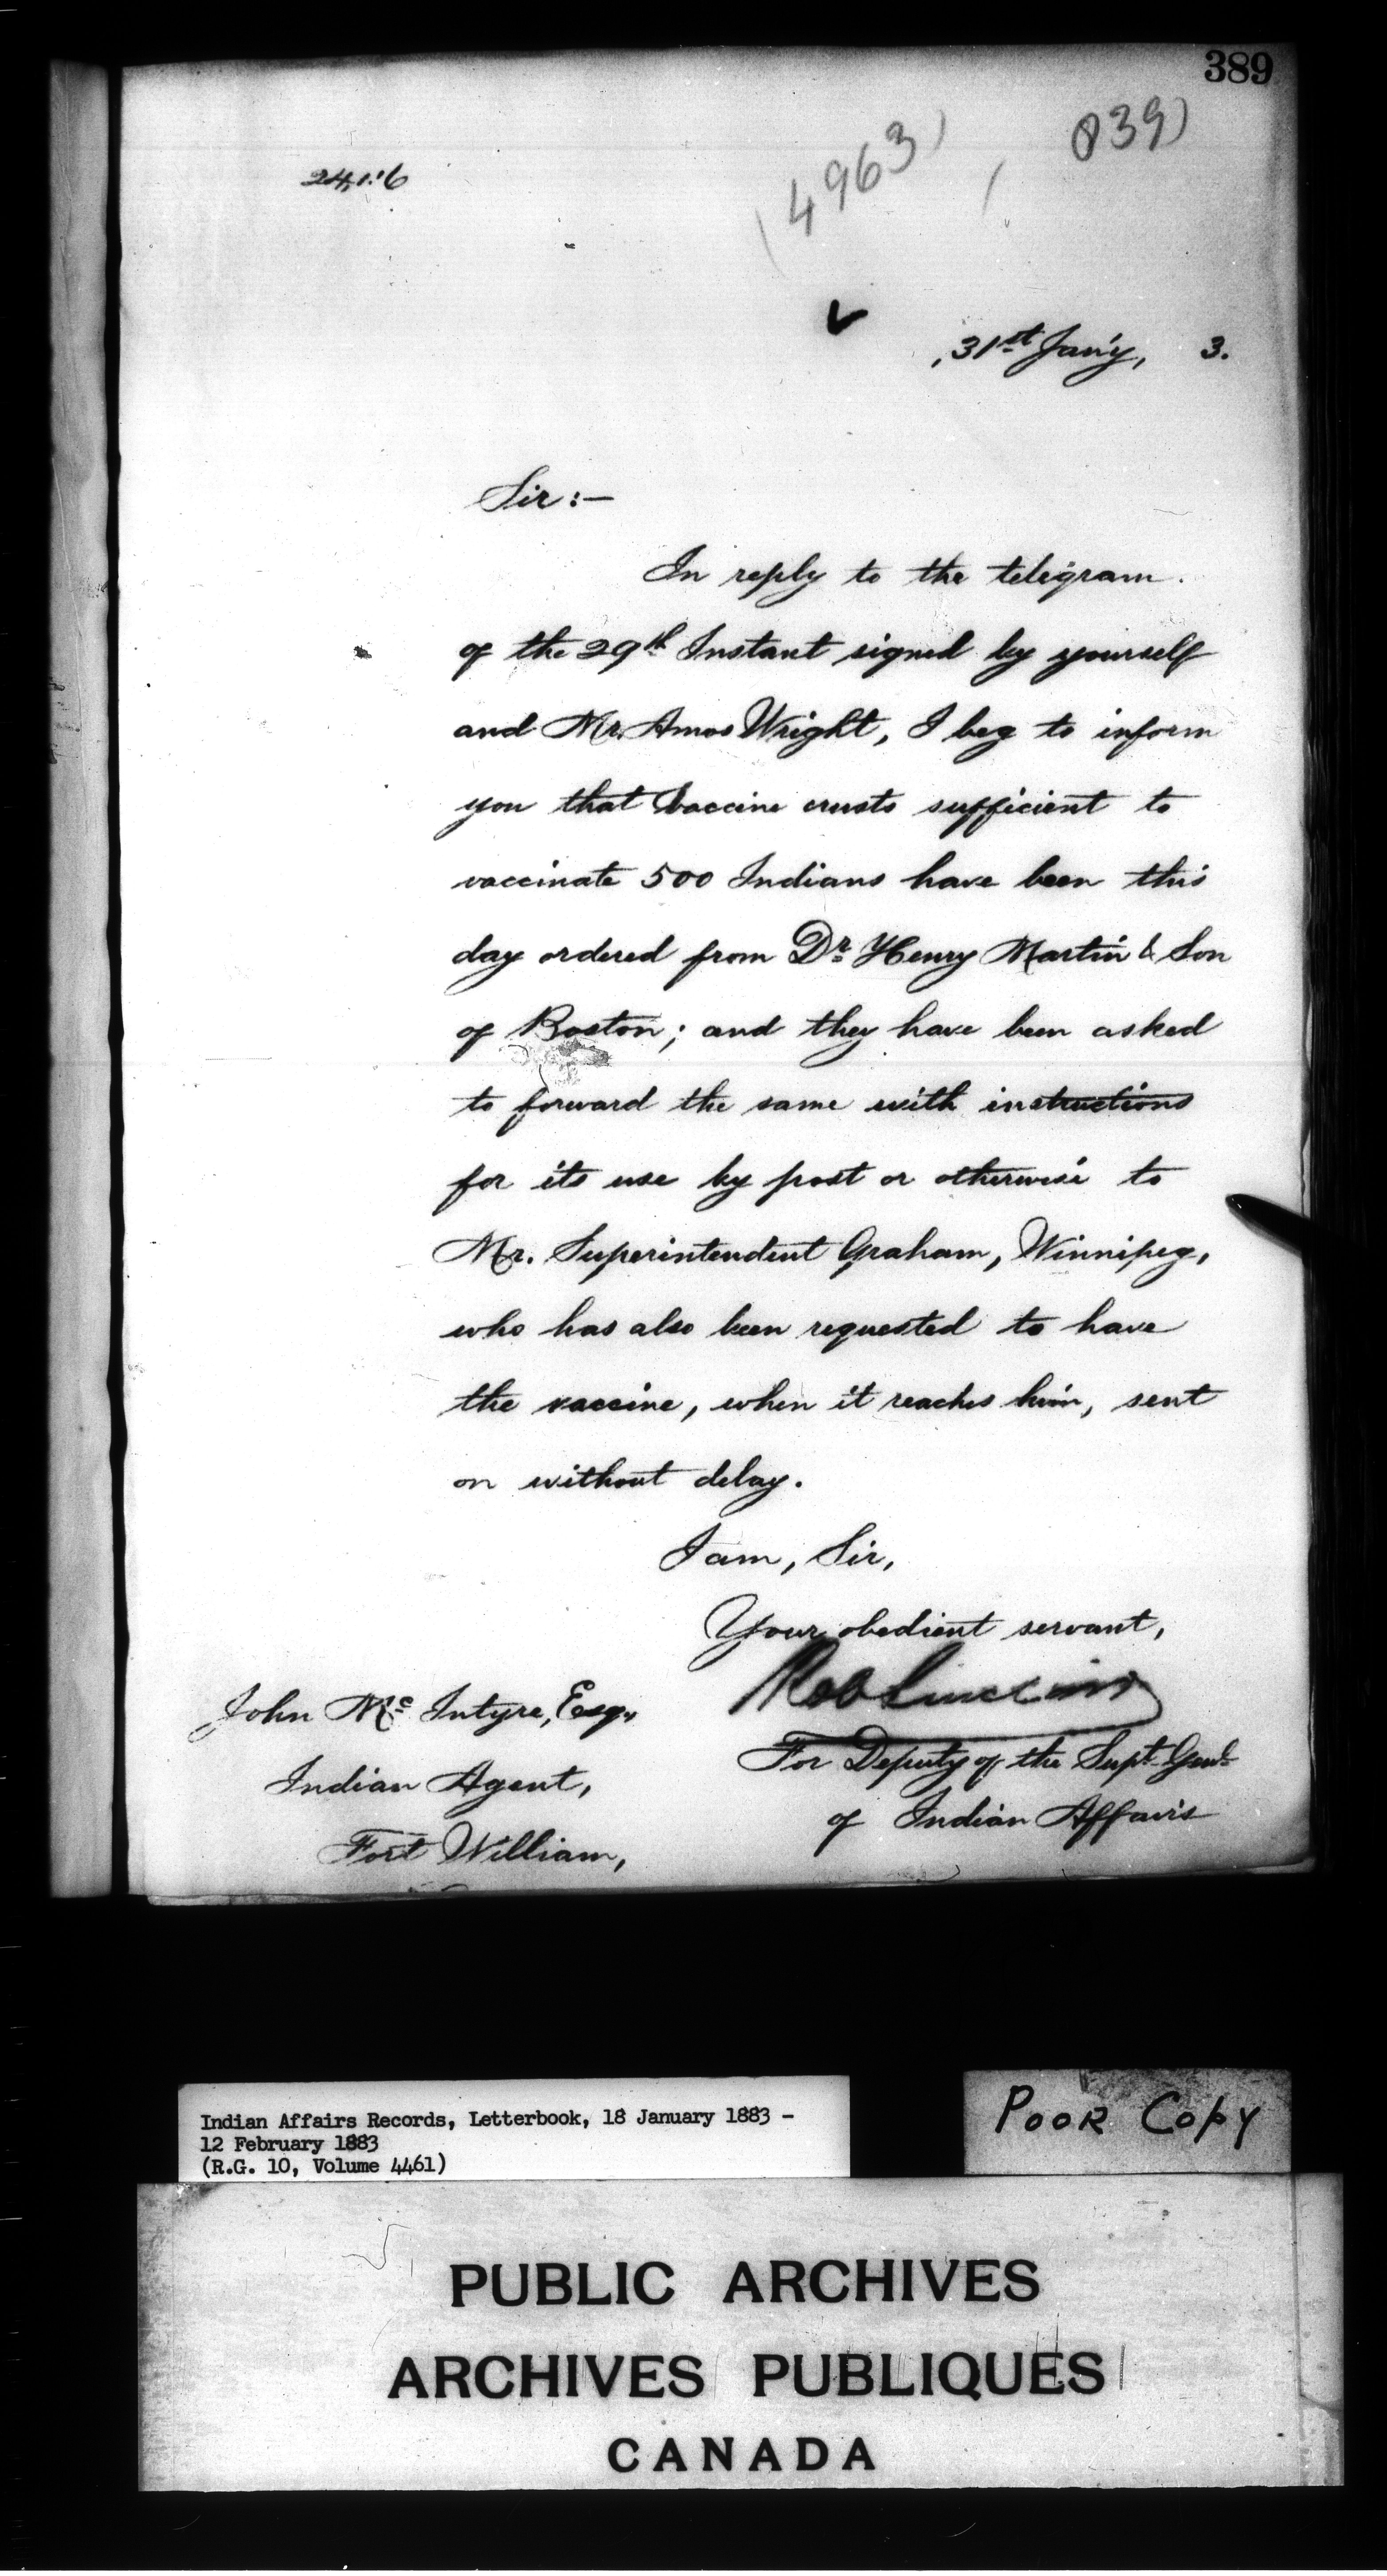 389
(4963)
(839)
31st Jan'y, 3.
Sir:—
In reply to the telegram
of the 29th Instant signed by yourself
and Mr. Amos Wright, I beg to inform
you that vaccine crusts sufficient to
vaccinate 500 Indians have been this
day ordered from Dr. Henry Martin & Son
of Boston; and they have been asked
to forward the same with instructions
for its use by post or otherwise to
Mr. Superintendent Graham, Winnipeg,
who has also been requested to have
the vaccine, when it reaches him, sent
on without delay.
I am, Sir,
Your obedient servant,
For Deputy of the Supt. Genl.
of Indian Affairs
John McIntyre, Esq.,
Indian Agent,
Fort William,
Indian Affairs Records, Letterbook, 18 January 1883 -
12 February 1883
(R.G. 10, Volume 4461)
Poor Copy
PUBLIC ARCHIVES
ARCHIVES PUBLIQUES
CANADA